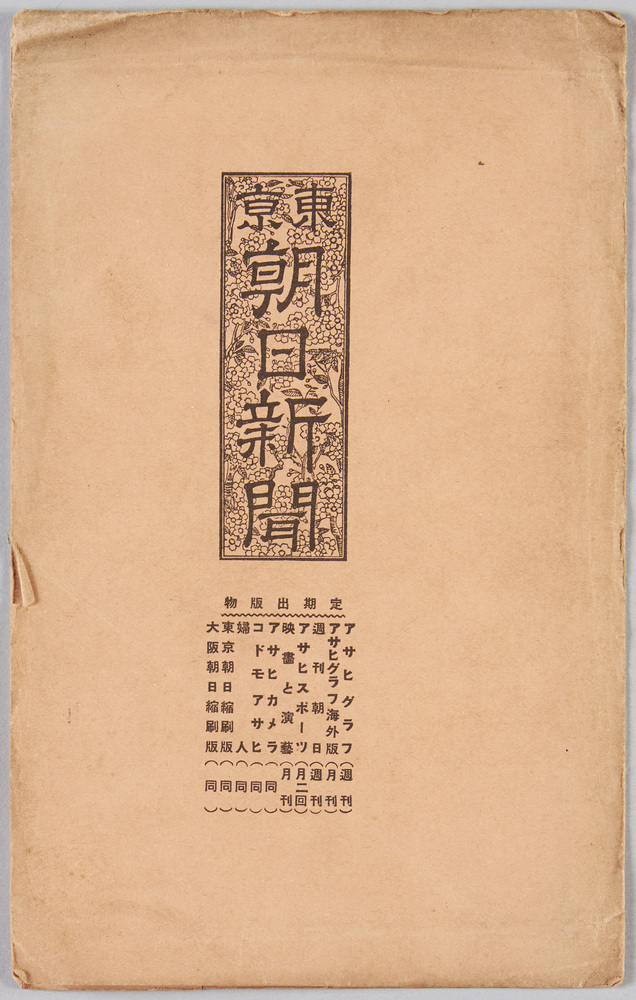 東京
朝日新聞
定期出版物
アサヒグラフ(週刊)
アサヒグラフ海外版(月刊)
週刊朝日(週刊)
アサヒスポーツ(月二回)
映畫と演藝(月刊)
アサヒカメラ(同)
コドモアサヒ(同)
婦人(同)
東京朝日縮刷版(同)
大阪朝日縮刷版(同)